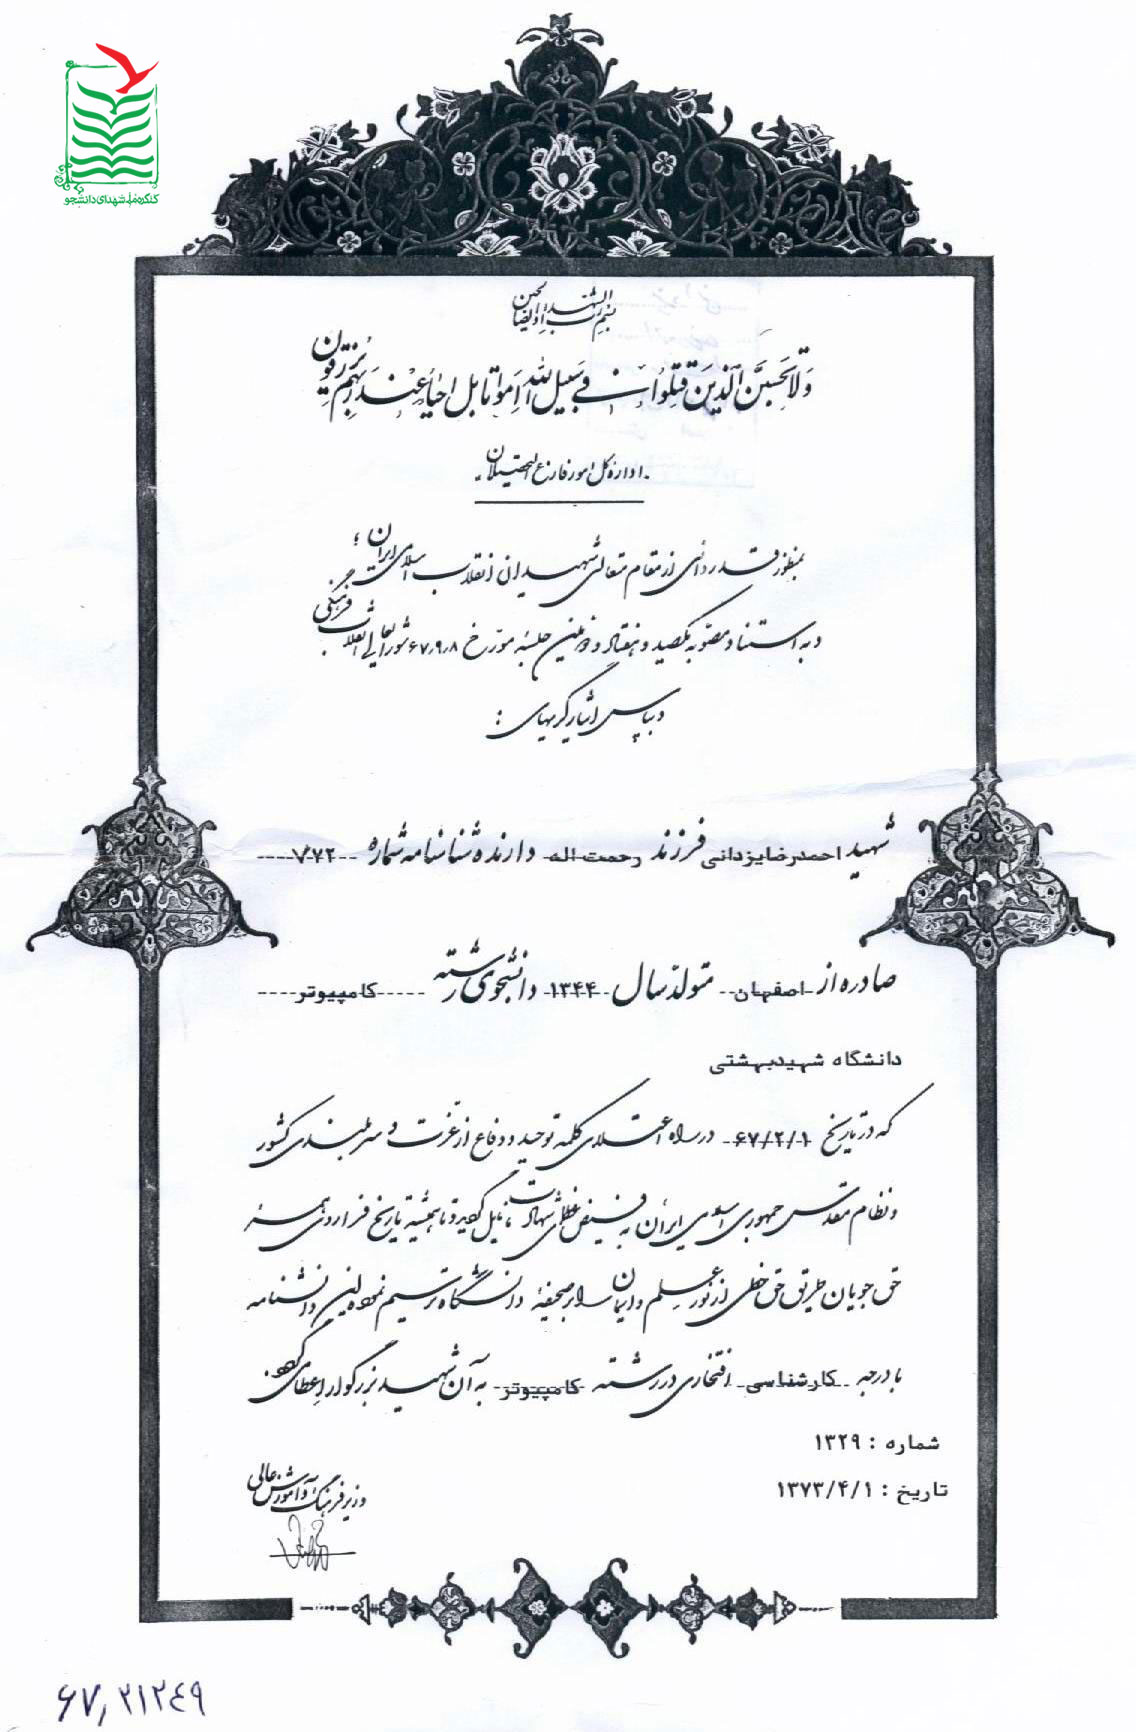 کنگره ملی شهدای دانشجو
بسم رب الشهداء و الصالحین
وَلا تَحسَبَنَّ الَّذینَ قُتِلوا فی سَبیلِ اللهِ اَمواتا بَل اَحیاءٌ عِندَ رَبِّهِم یُرزَقونَ
اداره کل امور فارغ التحصیلان
بمنظور قدردانی از مقام متعالی شهیدان انقلاب اسلامی ایران ؛
و به استناد مصوبه یکصد و هفتاد و دومین جلسه مورخ ۶۷٫۹٫۸ شورایعالی انقلاب فرهنگی
و بپاس ایثارگریهای :
شهید احمدرضا یزدانی فرزند رحمت اله دارنده شناسنامه شماره ۷۷۲
صادره از اصفهان متولد سال ۱۳۴۴ دانشجوی رشته کامپیوتر
دانشگاه شهید بهشتی
که در تاریخ ۶۷/۲/۱ در راه اعتلای کلمه توحید و دفاع از عزت و سربلندی کشور
و نظام مقدس جمهوری اسلامی ایران به فیض عظمای شهادت نایل گردید و تا همیشه تاریخ فراروی همه
حق جویان طریق حق خطی از نور علم و ایمان را بر صحیفه دانشگاه ترسیم نمود این دانشنامه
با درجه کارشناسی افتخاری در رشته کامپیوتر به آن شهید بزرگوار اعطا
شماره : ۱۳۲۹
تاریخ : ۱۳۷۳/۴/۱
وزیر فرهنگ و آموزش عالی
۶۷٫۲۱۲۴۹